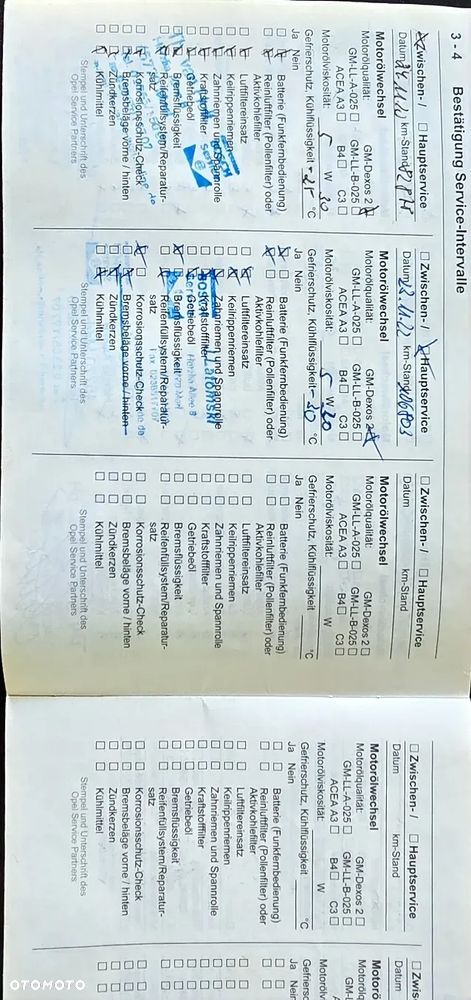 3 - 4 Bestätigung Service-Intervalle
Zwischen- / Hauptservice
Datum km-Stand
Motorölwechsel
Motorölqualität: GM-Dexos 2
GM-LL-A-025 GM-LL-B-025
ACEA A3 B4 C3
Motorölviskosität: 5 W 30
Gefrierschutz, Kühlflüssigkeit °C
Ja Nein
Batterie (Funkfernbedienung)
Reinluftfilter (Pollenfilter) oder
Aktivkohlefilter
Luftfiltereinsatz
Keilrippenriemen
Zahnriemen und Spannrolle
Kraftstofffilter
Getriebeöl
Bremsflüssigkeit
Reifenfüllsystem/Reparatur-
satz
Korrosionsschutz-Check
Bremsbeläge vorne / hinten
Zündkerzen
Kühlmittel
Stempel und Unterschrift des
Opel Service Partners
Zwischen- / Hauptservice
Datum 22.11.22 km-Stand
Motorölwechsel
Motorölqualität: GM-Dexos 2
GM-LL-A-025 GM-LL-B-025
ACEA A3 B4 C3
Motorölviskosität: 5 W 30
Gefrierschutz, Kühlflüssigkeit -30 °C
Ja Nein
Batterie (Funkfernbedienung)
Reinluftfilter (Pollenfilter) oder
Aktivkohlefilter
Luftfiltereinsatz
Keilrippenriemen
Zahnriemen und Spannrolle
Kraftstofffilter
Getriebeöl
Bremsflüssigkeit
Reifenfüllsystem/Reparatur-
satz
Korrosionsschutz-Check
Bremsbeläge vorne / hinten
Zündkerzen
Kühlmittel
Stempel und Unterschrift des
Opel Service Partners
Zwischen- / Hauptservice
Datum km-Stand
Motorölwechsel
Motorölqualität: GM-Dexos 2
GM-LL-A-025 GM-LL-B-025
ACEA A3 B4 C3
Motorölviskosität: W
Gefrierschutz, Kühlflüssigkeit °C
Ja Nein
Batterie (Funkfernbedienung)
Reinluftfilter (Pollenfilter) oder
Aktivkohlefilter
Luftfiltereinsatz
Keilrippenriemen
Zahnriemen und Spannrolle
Kraftstofffilter
Getriebeöl
Bremsflüssigkeit
Reifenfüllsystem/Reparatur-
satz
Korrosionsschutz-Check
Bremsbeläge vorne / hinten
Zündkerzen
Kühlmittel
Stempel und Unterschrift des
Opel Service Partners
Zwischen- / Hauptservice
Datum km-Stand
Motorölwechsel
Motorölqualität: GM-Dexos 2
GM-LL-A-025 GM-LL-B-025
ACEA A3 B4 C3
Motorölviskosität: W
Gefrierschutz, Kühlflüssigkeit °C
Ja Nein
Batterie (Funkfernbedienung)
Reinluftfilter (Pollenfilter) oder
Aktivkohlefilter
Luftfiltereinsatz
Keilrippenriemen
Zahnriemen und Spannrolle
Kraftstofffilter
Getriebeöl
Bremsflüssigkeit
Reifenfüllsystem/Reparatur-
satz
Korrosionsschutz-Check
Bremsbeläge vorne / hinten
Zündkerzen
Kühlmittel
Stempel und Unterschrift des
Opel Service Partners
OTOMOTO